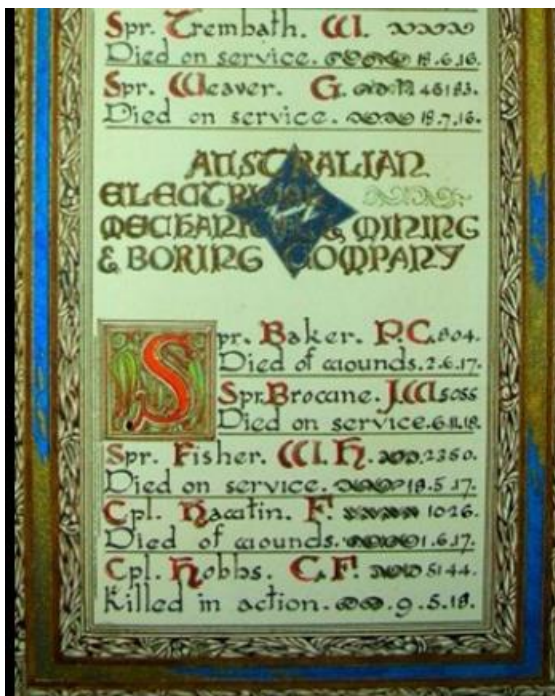 Spr. Trembath. W.
Died on service. 18.6.16.
Spr. Weaver. G. 46183.
Died on service. 18.7.16.
AUSTRALIAN
ELECTRICAL
MECHANICAL & MINING
& BORING COMPANY
Spr. Baker. P.C. 804.
Died of wounds. 2.6.17.
Spr. Browne. J.W. 5055
Died on service. 6.11.18.
Spr. Fisher. W. H. 2360.
Died on service. 18.5.17.
Cpl. Hawtin. F. 1026.
Died of wounds. 1.6.17.
Cpl. Hobbs. C.F. 5144.
Killed in action. 9.5.18.